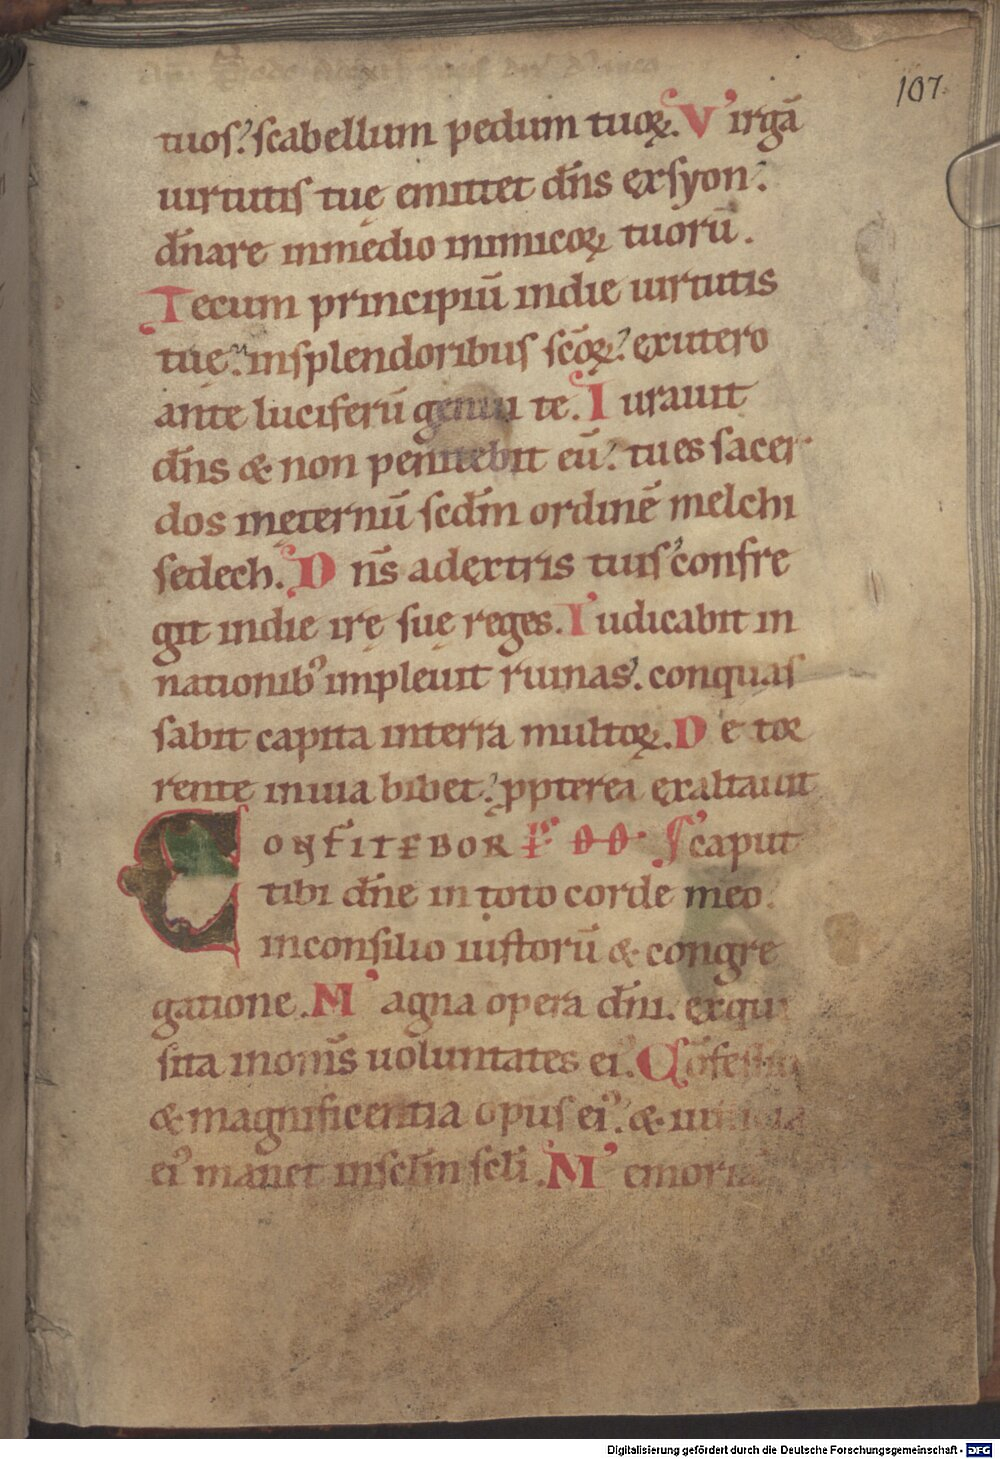 107.
tuos. scabellum pedum tuoꝝ. Virgā
uirtutis tuę emittet dn̄s exsyon.
dn̄are inmedio inimicoꝝ tuorū.
Tecum principiū indie uirtutis
tuę. insplendoribus sc̄oꝝ. exutero
ante luciferū genui te. Iurauit
dn̄s & non penitebit eū. tu es sacer
dos inęternū scd̄m ordinē melchi
sedech. Dn̄s adextris tuis confre
git indie irę suę reges. Iudicabit in
nationibꝰ impleuit ruinas. conquas
sabit capita interra multoꝝ. De tor
rente inuia bibet. ꝓpterea exaltauit
CONFITEBOR caput
tibi dn̄e in toto corde meo.
inconsilio iustorū & congre
gatione. Magna opera dn̄i. exqui
sita inom̄s uoluntates eiꝰ. Cōfessio
& magnificentia opus eiꝰ. & iusticia
eiꝰ manet insclm̄ scli. Memoria
Digitalisierung gefördert durch die Deutsche Forschungsgemeinschaft - DFG